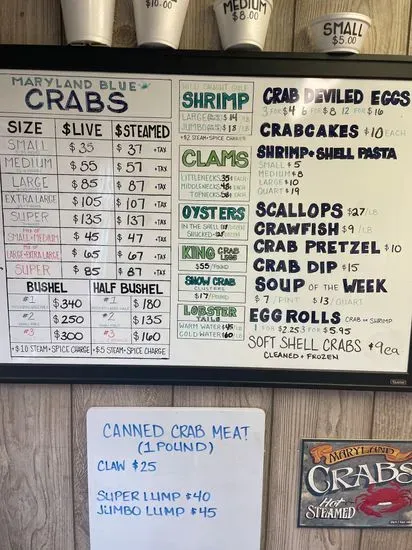 $10.00
MEDIUM
$8.00
SMALL
$5.00
MARYLAND BLUE
CRABS
SIZE $LIVE $STEAMED
SMALL $35 $37 +TAX
MEDIUM $55 $57 +TAX
LARGE $85 $87 +TAX
EXTRA LARGE $105 $107 +TAX
SUPER $135 $137 +TAX
SMALL+MEDIUM $45 $47 +TAX
LARGE+EXTRA LARGE $65 $67 +TAX
SUPER $85 $87 +TAX
BUSHEL HALF BUSHEL
#1 $340 #1 $180
#2 $250 #2 $135
#3 $300 #3 $160
+$10 STEAM+SPICE CHARGE +$5 STEAM+SPICE CHARGE
SHRIMP
LARGE $14 LB
JUMBO $18 LB
+$2 STEAM+SPICE CHARGE
CLAMS
LITTLENECKS 35¢ EACH
MIDDLENECKS EACH
TOPNECKS EACH
OYSTERS
IN THE SHELL
SHUCKED
KING CRAB LEGS
$55/POUND
SNOW CRAB
CLUSTERS
$17/POUND
LOBSTER
TAILS
WARM WATER $45 LB
COLD WATER $60 LB
CRAB DEVILED EGGS
3 FOR $4 6 FOR $8 12 FOR $16
CRABCAKES $10 EACH
SHRIMP+SHELL PASTA
SMALL $5
MEDIUM $8
LARGE $10
QUART $19
SCALLOPS $27/LB
CRAWFISH $9/LB
CRAB PRETZEL $10
CRAB DIP $15
SOUP OF THE WEEK
$7/PINT $13/QUART
EGG ROLLS CRAB OR SHRIMP
1 FOR $2.25 3 FOR $5.95
SOFT SHELL CRABS $9ea
CLEANED + FROZEN
CANNED CRAB MEAT
(1 POUND)
CLAW $25
SUPER LUMP $40
JUMBO LUMP $45
MARYLAND
CRABS
Hot
STEAMED